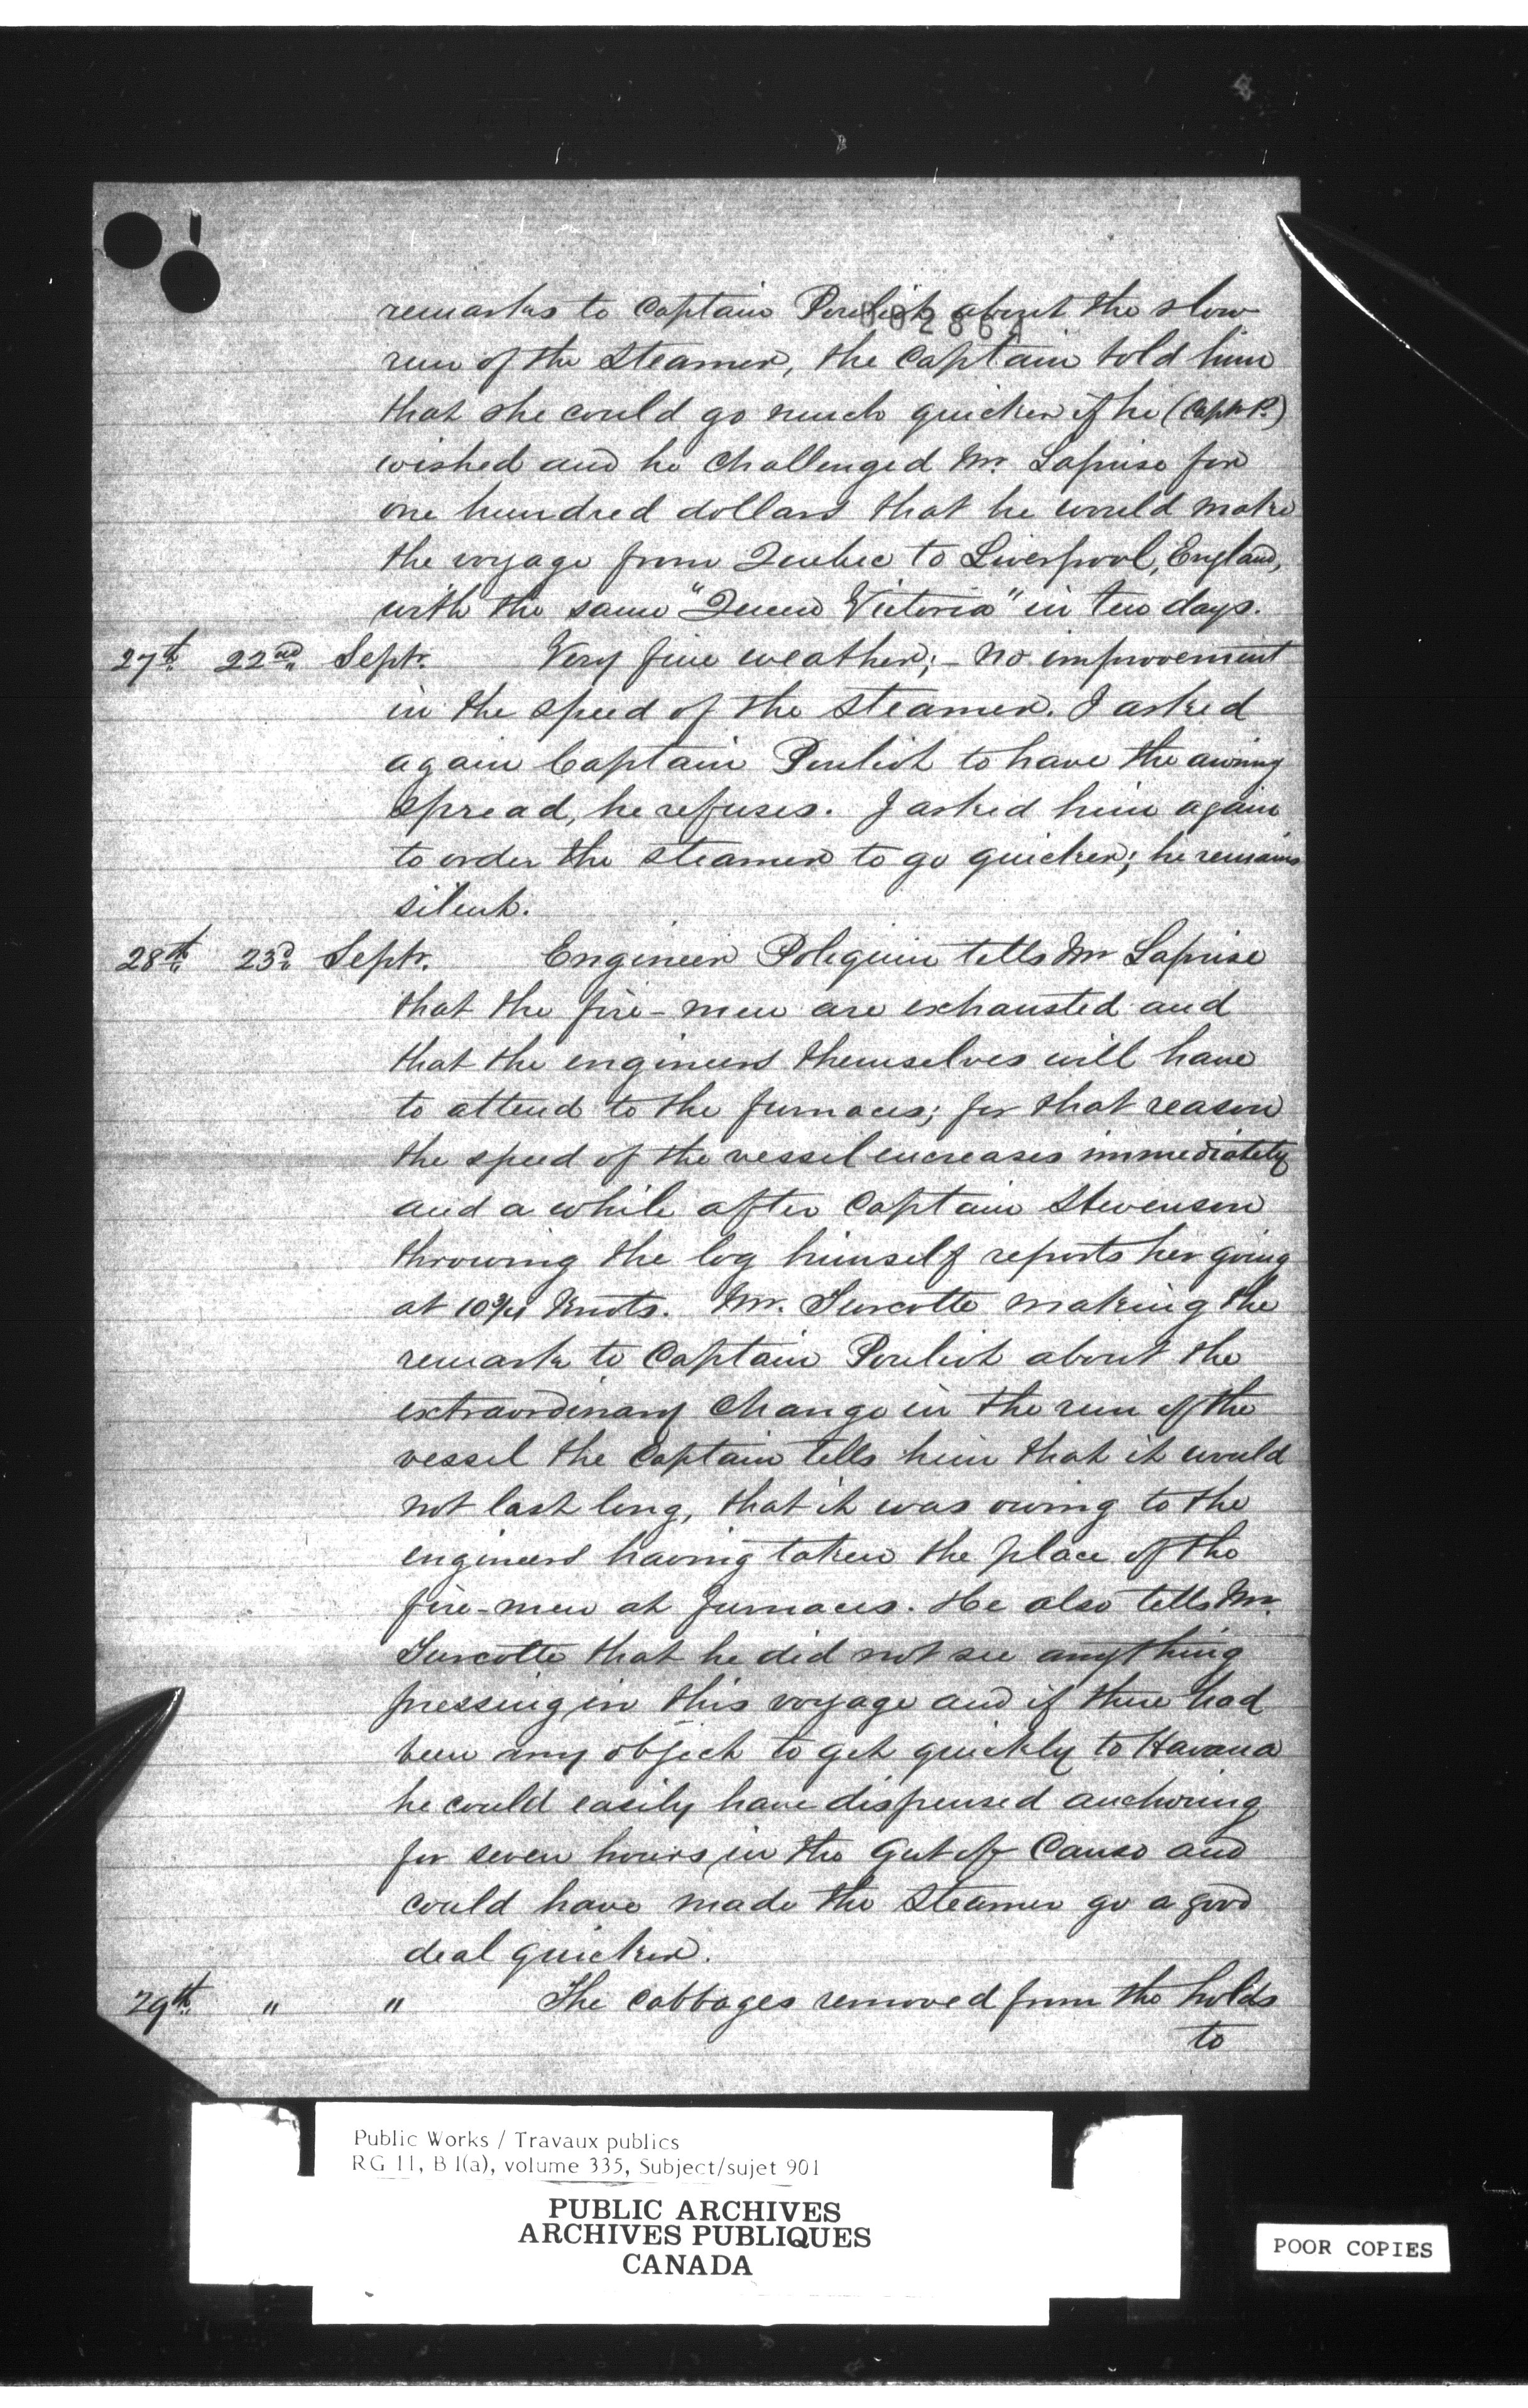 remarks to Captain Pouliot about the slow
run of the Steamer, the Captain told him
that she could go much quicker if he (Capt. P.)
wished and he challenged Mr. Laprise for
one hundred dollars that he would make
the voyage from Quebec to Liverpool, England,
with the same "Queen Victoria" in ten days.
27th. 22nd Septr. Very fine weather; - no improvement
in the speed of the steamer. I asked
again Captain Pouliot to have the awning
spread, he refuses. I asked him again
to order the steamer to go quicker; he remains
silent.
28th. 23d. Septr. Engineer Poliquin tells Mr Laprise
that the fire-men are exhausted and
that the engineers themselves will have
to attend to the furnaces; for that reason
the speed of the vessel encreases immediately
and a while after Captain Stevenson
throwing the log himself reports her going
at 10 3/4 Knots. Mr. Turcotte making the
remark to Captain Pouliot about the
extraordinary change in the run of the
vessel the Captain tells him that it would
not last long, that it was owing to the
engineers having taken the place of the
fire-men at furnaces. He also tells Mr.
Turcotte that he did not see anything
pressing in this voyage and if there had
been any object to get quickly to Havana
he could easily have dispensed anchoring
for seven hours in the Gut of Canso and
could have made the steamer go a good
deal quicker.
29th. " " The cabbages removed from the holds
to
Public Works / Travaux publics
RG 11, B 1(a), volume 335, Subject/sujet 901
PUBLIC ARCHIVES
ARCHIVES PUBLIQUES
CANADA
POOR COPIES